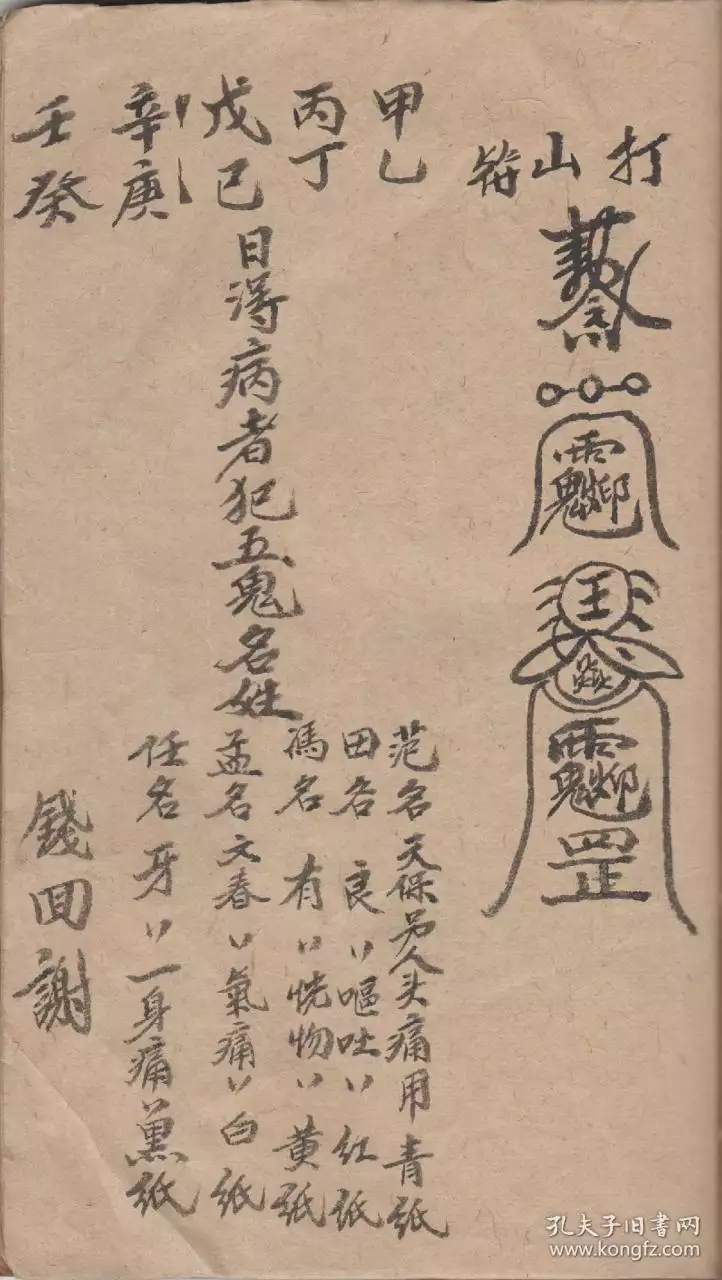 打山符
王
罡
甲乙
丙丁
戊己
辛庚
壬癸
日得病者犯五鬼名姓
范名天保另人头痛用青紙
田名良〃嘔吐〃红紙
馮名有〃恍惚〃黄紙
孟名文春〃氣痛〃白紙
任名牙〃一身痛〃黑紙
錢回謝
孔夫子旧書网
www.kongfz.com